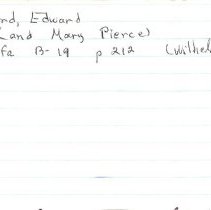 rd, Edward
and Mary Pierce)
fa B-19 p 212 (Wilhel